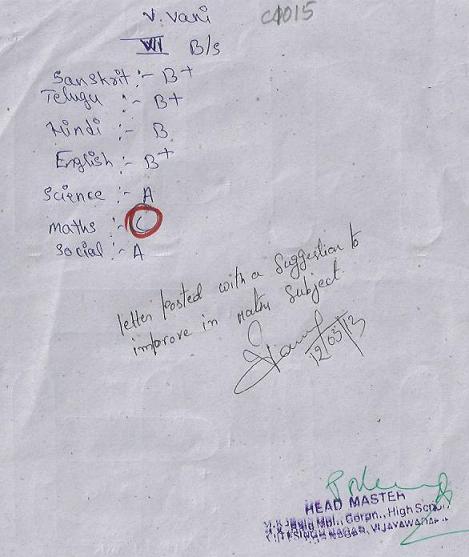 V. Vani
C4015
VII B/s
Sanskrit :- B+
Telugu :- B+
Hindi :- B
English :- B+
Science :- A
maths :- C
Social :- A
letter posted with a suggestion to
improve in Maths Subject
12/03/13
HEAD MASTER
Mpl. Corpn., High School
NAGAR, VIJAYAWADA